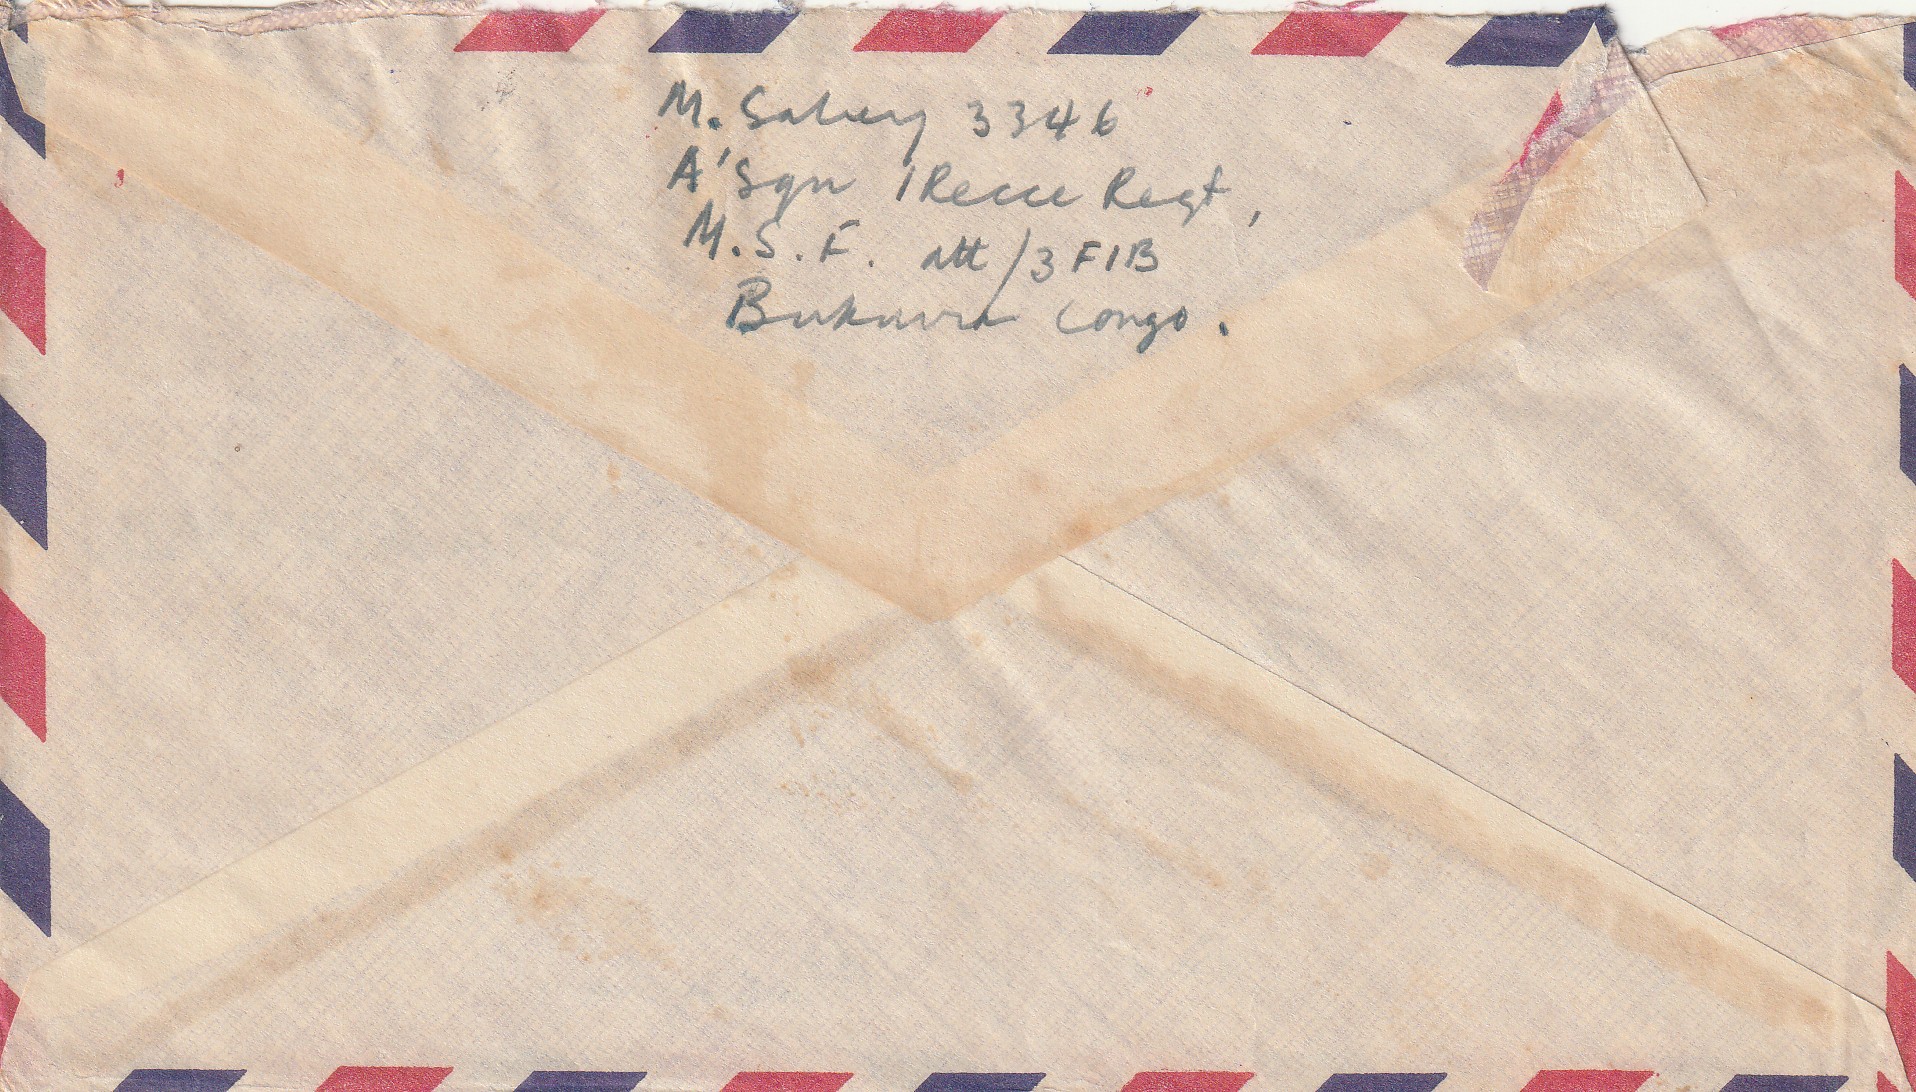 M. Salvey 3346
A' Sqn 1 Recce Regt,
M.S.F. att/3 FIB
Bukavu Congo.